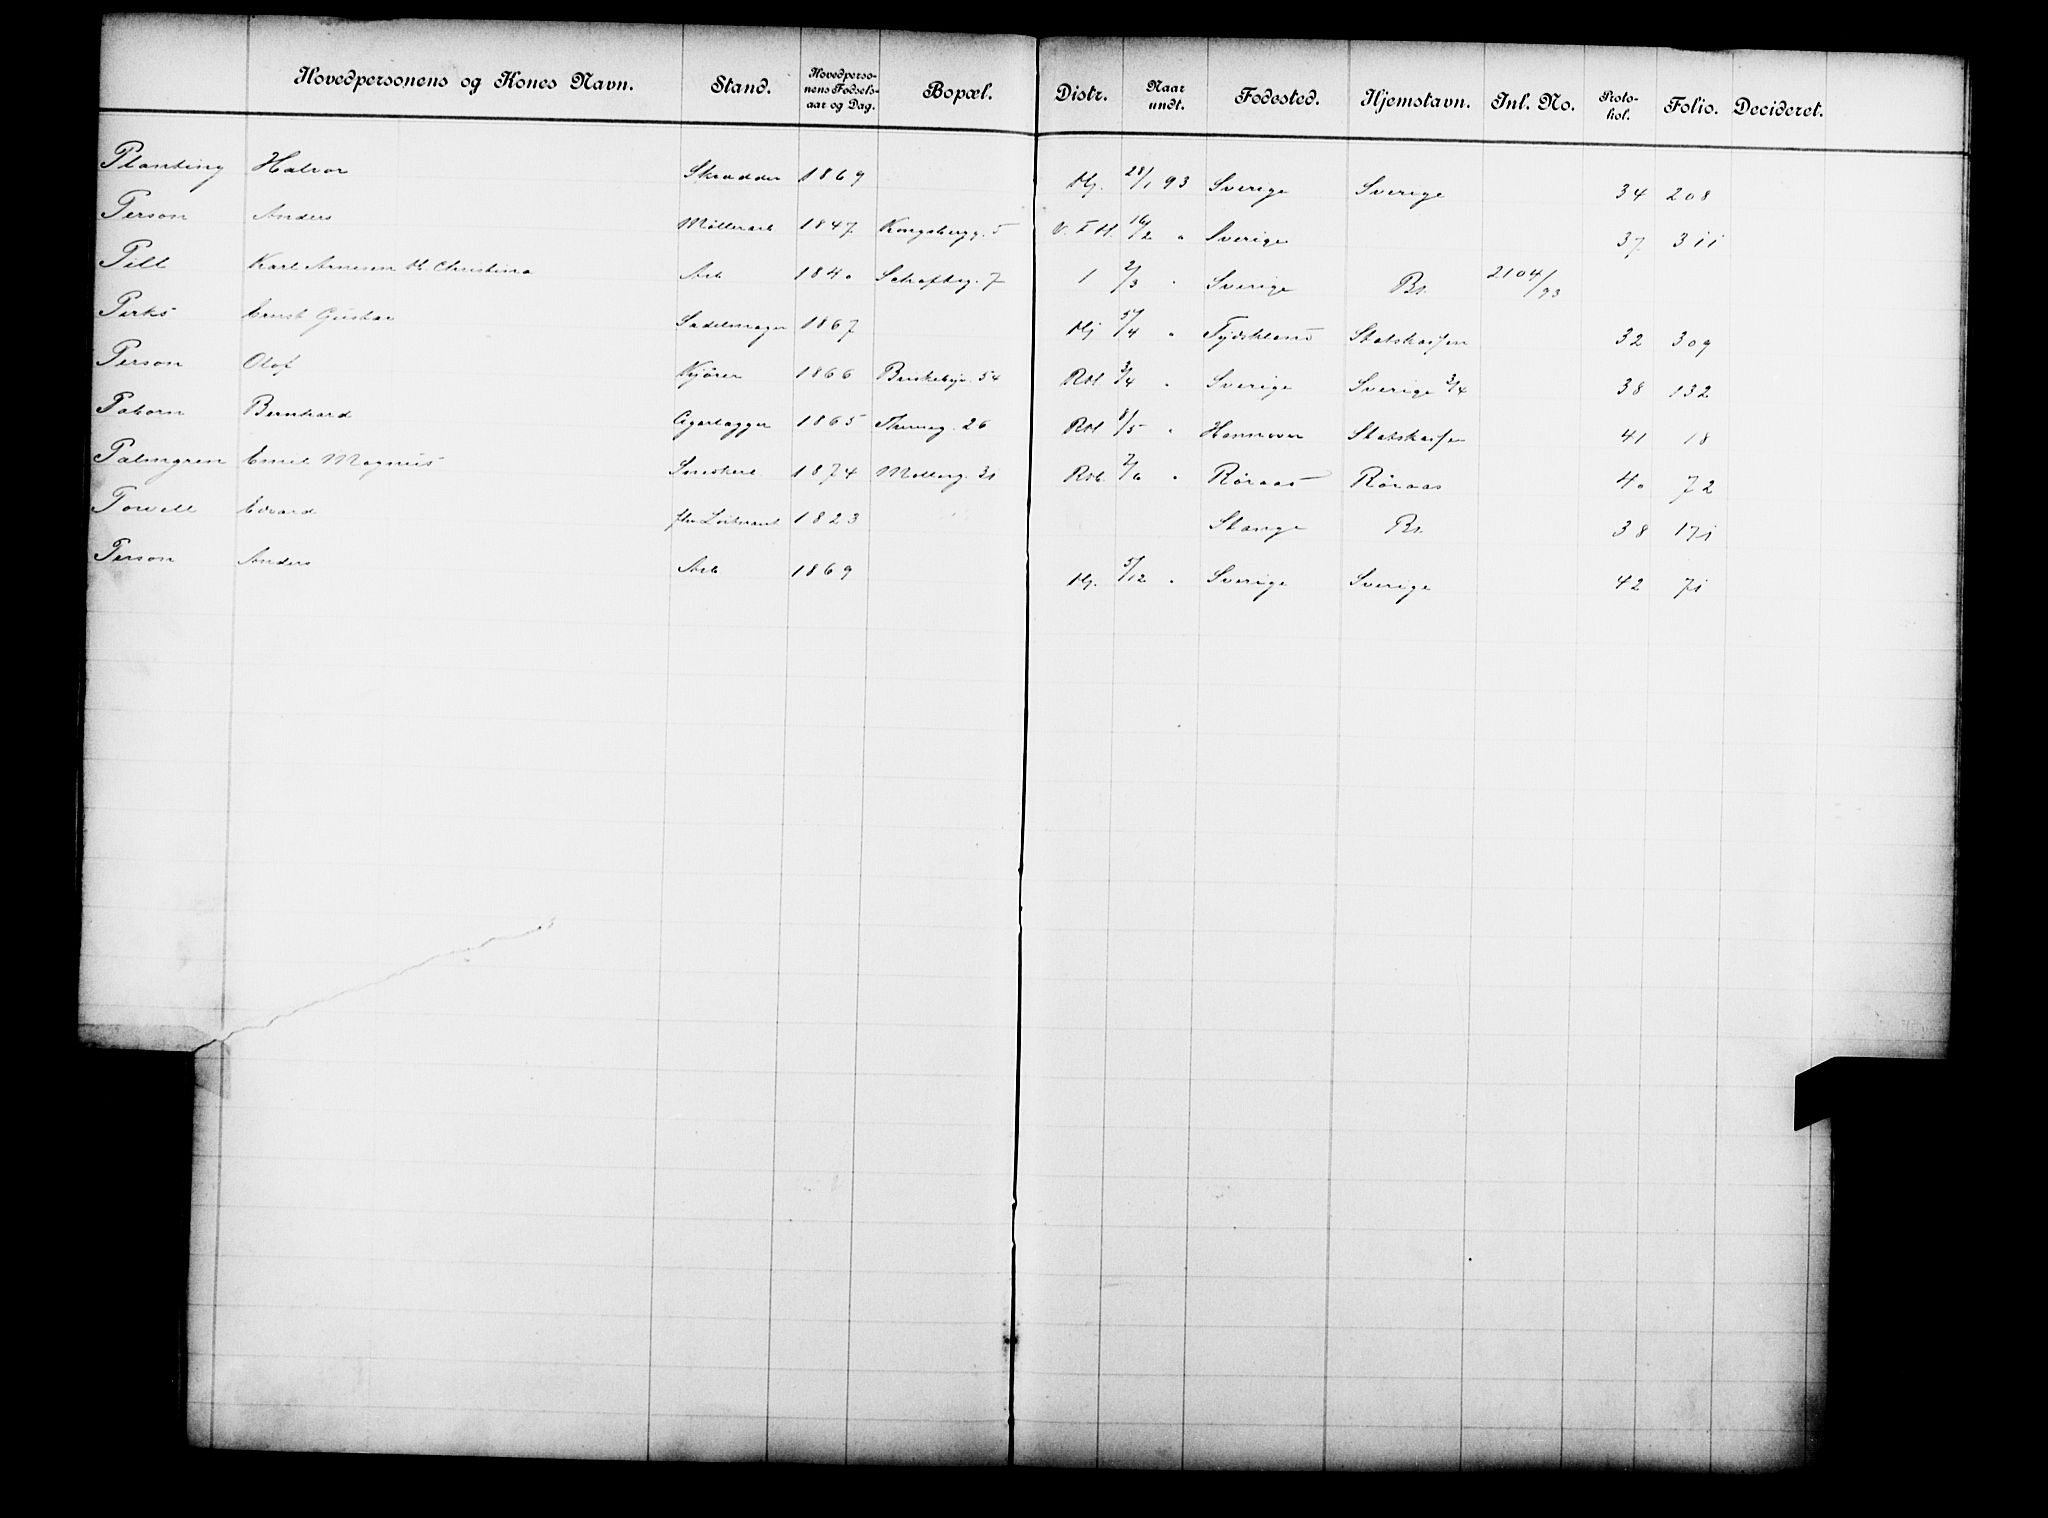 Hovedpersonens og Kones Navn. Stand. Hovedpersonens Fødselsaar og Dag. Bopæl. Distr. Naar undt. Fødested. Hjemstavn. Inl. No. Protokol. Folio. Decideret.
Planting Halvor Skrædder 1869 Hj. 28/1 93 Sverige Sverige 34 208
Person Anders Møllerarb 1847 Kongsbergg. 5 V. F. H. 16/2 " Sverige 37 311
Pill Karl Arnesen & Christina Arb 1840 Schafteg. 7 1 2/3 " Sverige Bs. 2104/93
Perks Ernst Gustav Sadelmager 1867 Hj 5/4 " Tydskland Statskassen 32 309
Person Olof Kjører 1866 Briskebyv. 54 Rbl 3/4 " Sverige Sverige 3/4 38 132
Paborn Bernhard 1865 Thereseg. 26 Rbl 8/5 " Hannover Statskassen 41 18
Palmgren Emil Magnus 1874 Møllerg. 31 Rbl. 2/6 " Røraas Røraas 40 72
Powell Edvard fhv Løitnant 1823 Stange Bs. 38 171
Person Anders Arb 1869 Hj. 5/12 " Sverige Sverige 42 71